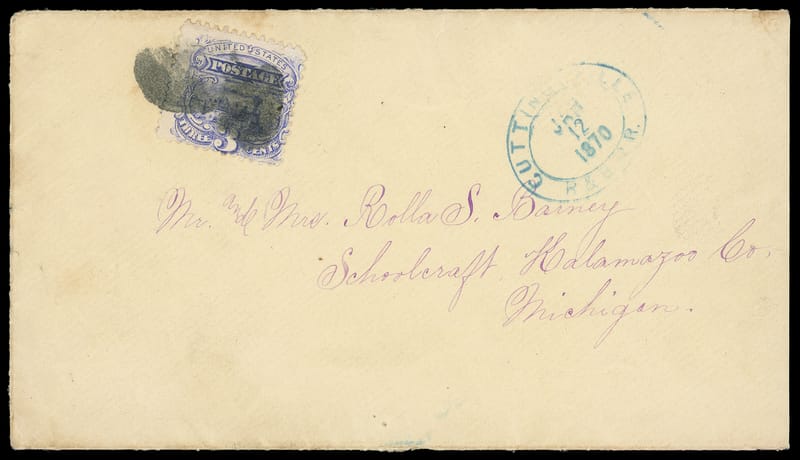 UNITED STATES
POSTAGE
THREE 3 CENTS
CUTTINGSVILLE
JAN
12
1870
R&B.R.R.
Mr. & Mrs. Rolla S. Barney
Schoolcraft Kalamazoo Co.
Michigan.